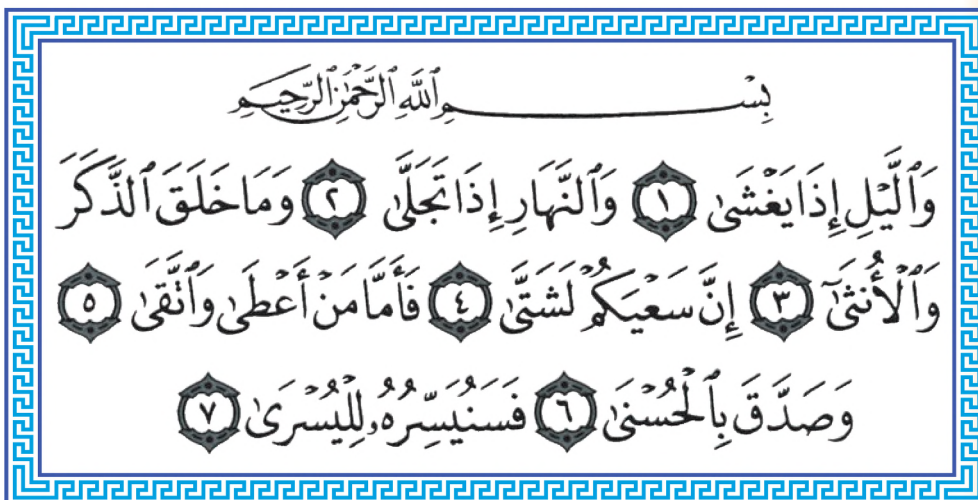 بِسْمِ ٱللَّهِ ٱلرَّحْمَٰنِ ٱلرَّحِيمِ
وَٱلَّيْلِ إِذَا يَغْشَىٰ ١ وَٱلنَّهَارِ إِذَا تَجَلَّىٰ ٢ وَمَا خَلَقَ ٱلذَّكَرَ
وَٱلْأُنثَىٰٓ ٣ إِنَّ سَعْيَكُمْ لَشَتَّىٰ ٤ فَأَمَّا مَنْ أَعْطَىٰ وَٱتَّقَىٰ ٥
وَصَدَّقَ بِٱلْحُسْنَىٰ ٦ فَسَنُيَسِّرُهُۥ لِلْيُسْرَىٰ ٧